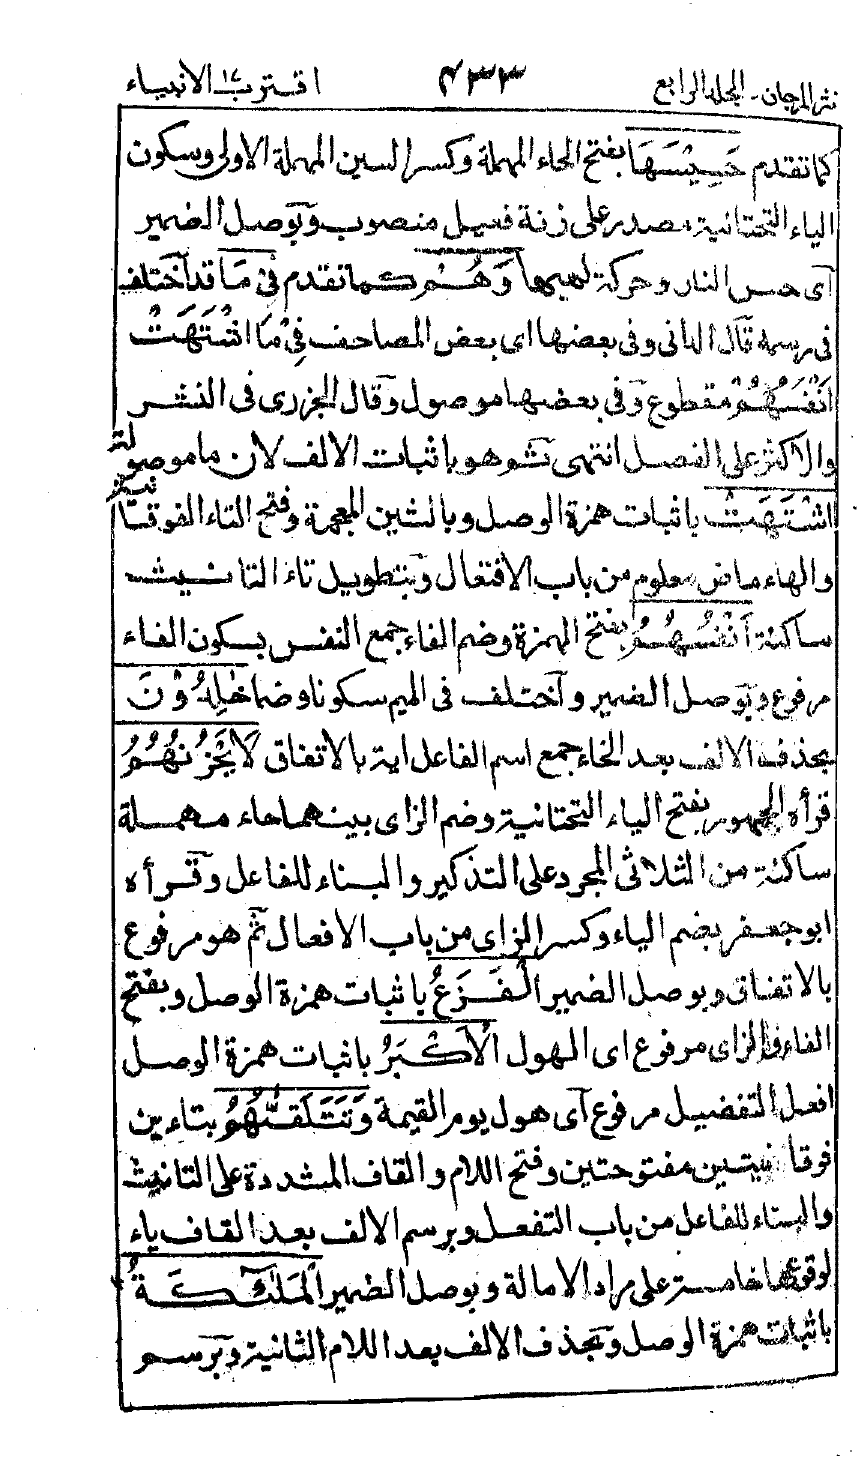 نثر المرجان - الجلد الرابع ٤٣٣ اقترب ١٧ الانبياء
كما تقدم حَسِيْسَهَا بفتح الحاء المهملة وكسر السين المهملة الاولى وسكون
الياء التحتانية مصدر على زنة فعيل منصوب وبوصل الضمير
اى حس النار وحركة لهيبها وَهُمْ كما تقدم فِىْ مَا قد اختلف
فى رسمه قال الدانى وفى بعضها اى بعض المصاحف فِىْ مَا اشْتَهَتْ
اَنْفُسُهُمْ مقطوع وفى بعضها موصول وقال الجزرى فى النشر
والاكثر على الفصل انتهى ثم هو باثبات الالف لان ما موصولة
اشْتَهَتْ باثبات همزة الوصل وبالشين المعجمة وفتح التاء الفوقانية
والهاء ماض معلوم من باب الافتعال وبتطويل تاء التانيث
ساكنة اَنْفُسُهُمْ بفتح الهمزة وضم الفاء جمع النفس بسكون الفاء
مرفوع وبوصل الضمير واختلف فى الميم سكونا وضما خٰلِدُوْنَ
بحذف الالف بعد الخاء جمع اسم الفاعل اية بالاتفاق لَا يَحْزُنُهُمُ
قرأه الجمهور بفتح الياء التحتانية وضم الزاى بينهما حاء مهملة
ساكنة من الثلاثى المجرد على التذكير والبناء للفاعل وقرأه
ابو جعفر بضم الياء وكسر الزاى من باب الافعال ثم هو مرفوع
بالاتفاق وبوصل الضمير الْفَزَعُ باثبات همزة الوصل وبفتح
الفاء والزاى مرفوع اى الهول الْاَكْبَرُ باثبات همزة الوصل
افعل التفضيل مرفوع اى هول يوم القيمة وَتَتَلَقّٰىهُمُ بتاءين
فوقانيتين مفتوحتين وفتح اللام والقاف المشددة على التانيث
والبناء للفاعل من باب التفعل وبرسم الالف بعد القاف ياء
لوقوعها خامسة على مراد الامالة وبوصل الضمير الْمَلٰٓئِكَةُ
باثبات همزة الوصل وبحذف الالف بعد اللام الثانية وبرسم